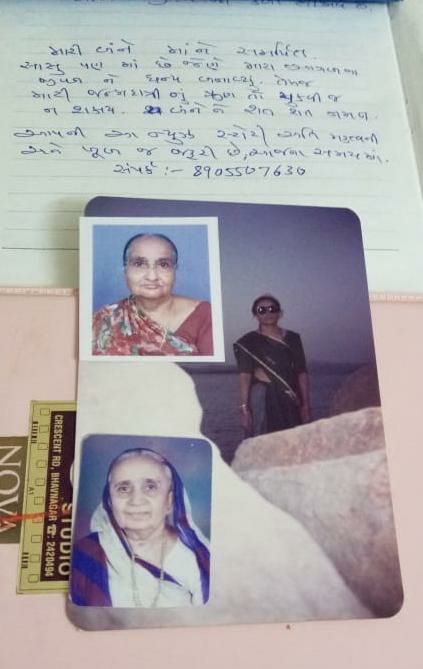 મારી બંને માંને સમર્પિત.
સાસુ પણ માં છે જેણે મારા
જીવન ને ધન્ય બનાવ્યું. તેમજ
મારી જન્મદાત્રી નું ઋણ તો ચૂકવી જ
ન શકાય. બંને ને શત શત નમન.
આપની આ ન્યુઝ સ્ટોરી અતિ મહત્વની
અને ખૂબ જ જરૂરી છે, આજના સમયમાં.
સંપર્ક :- 8905507630
CRESCENT RD, BHAVNAGAR ☎: 2420494
STUDIO
NOV